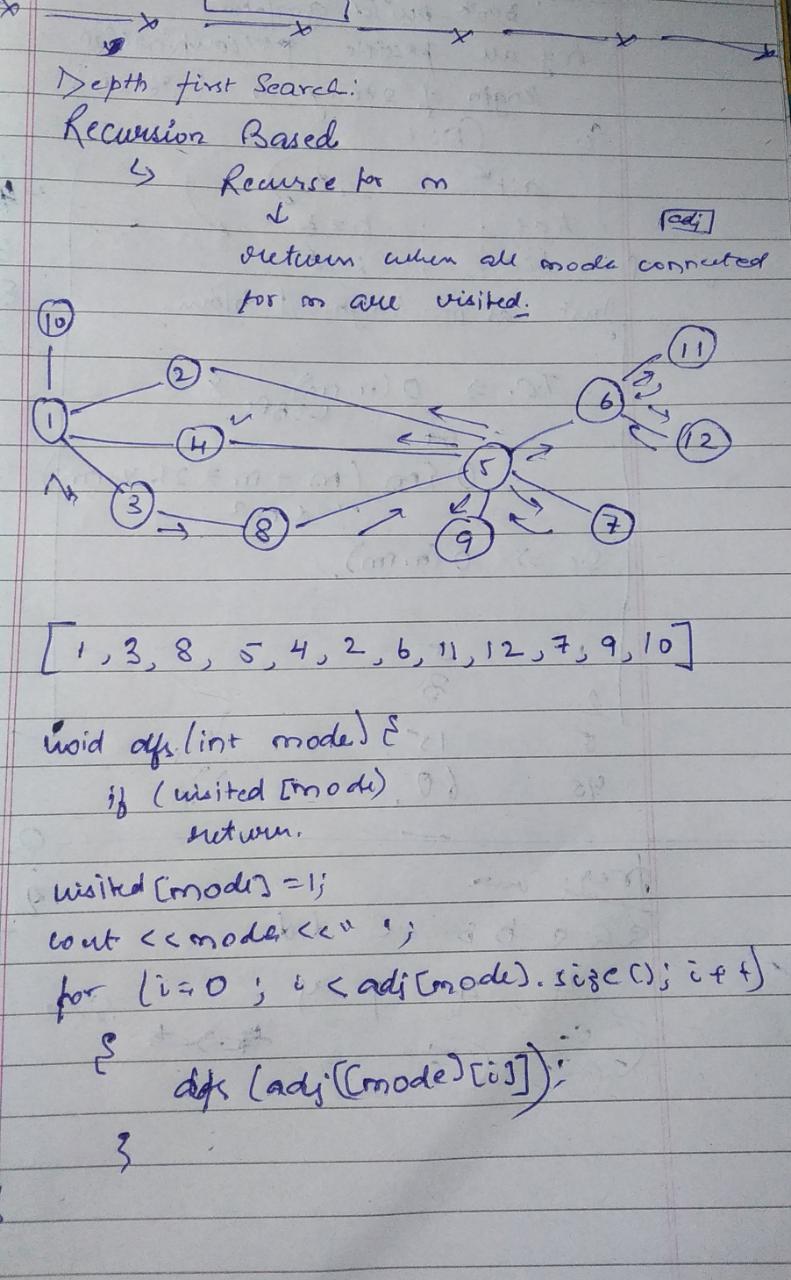 Depth first Search:
Recursion Based
↳ Recurse for n
↓
adj
return when all node connected
for n are visited.
10
11
2
6
1
4
12
5
3
8
9
7
[1, 3, 8, 5, 4, 2, 6, 11, 12, 7, 9, 10]
void dfs (int node) {
if (visited [node)
return.
visited [node] = 1;
cout << node << " ";
for (i=0 ; i < adj [node]. size (); i++)
{
dfs (adj [[node] [i]]);
}